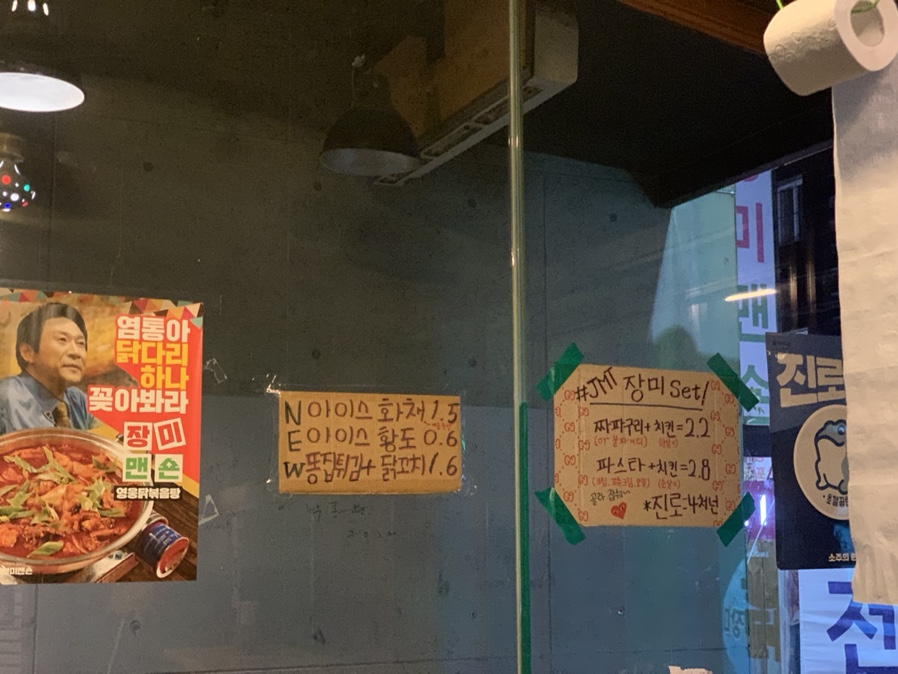 염통아
닭다리
하나
꽂아봐라
장미
맨숀
영웅닭볶음탕
NEW
아이스 화채 1.5
아이스 황도 0.6
똥집튀김+닭꼬치 1.6
#JMT 장미 Set!
짜파구리+치킨=2.2
파스타+치킨=2.8
*진로-4처넌
미맨숀
진로
소주의 원
진